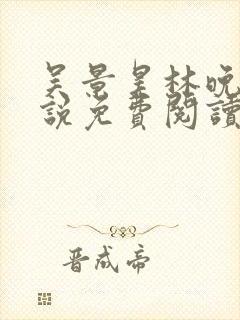 吴景星林晚
說免費閱讀
晋成帝